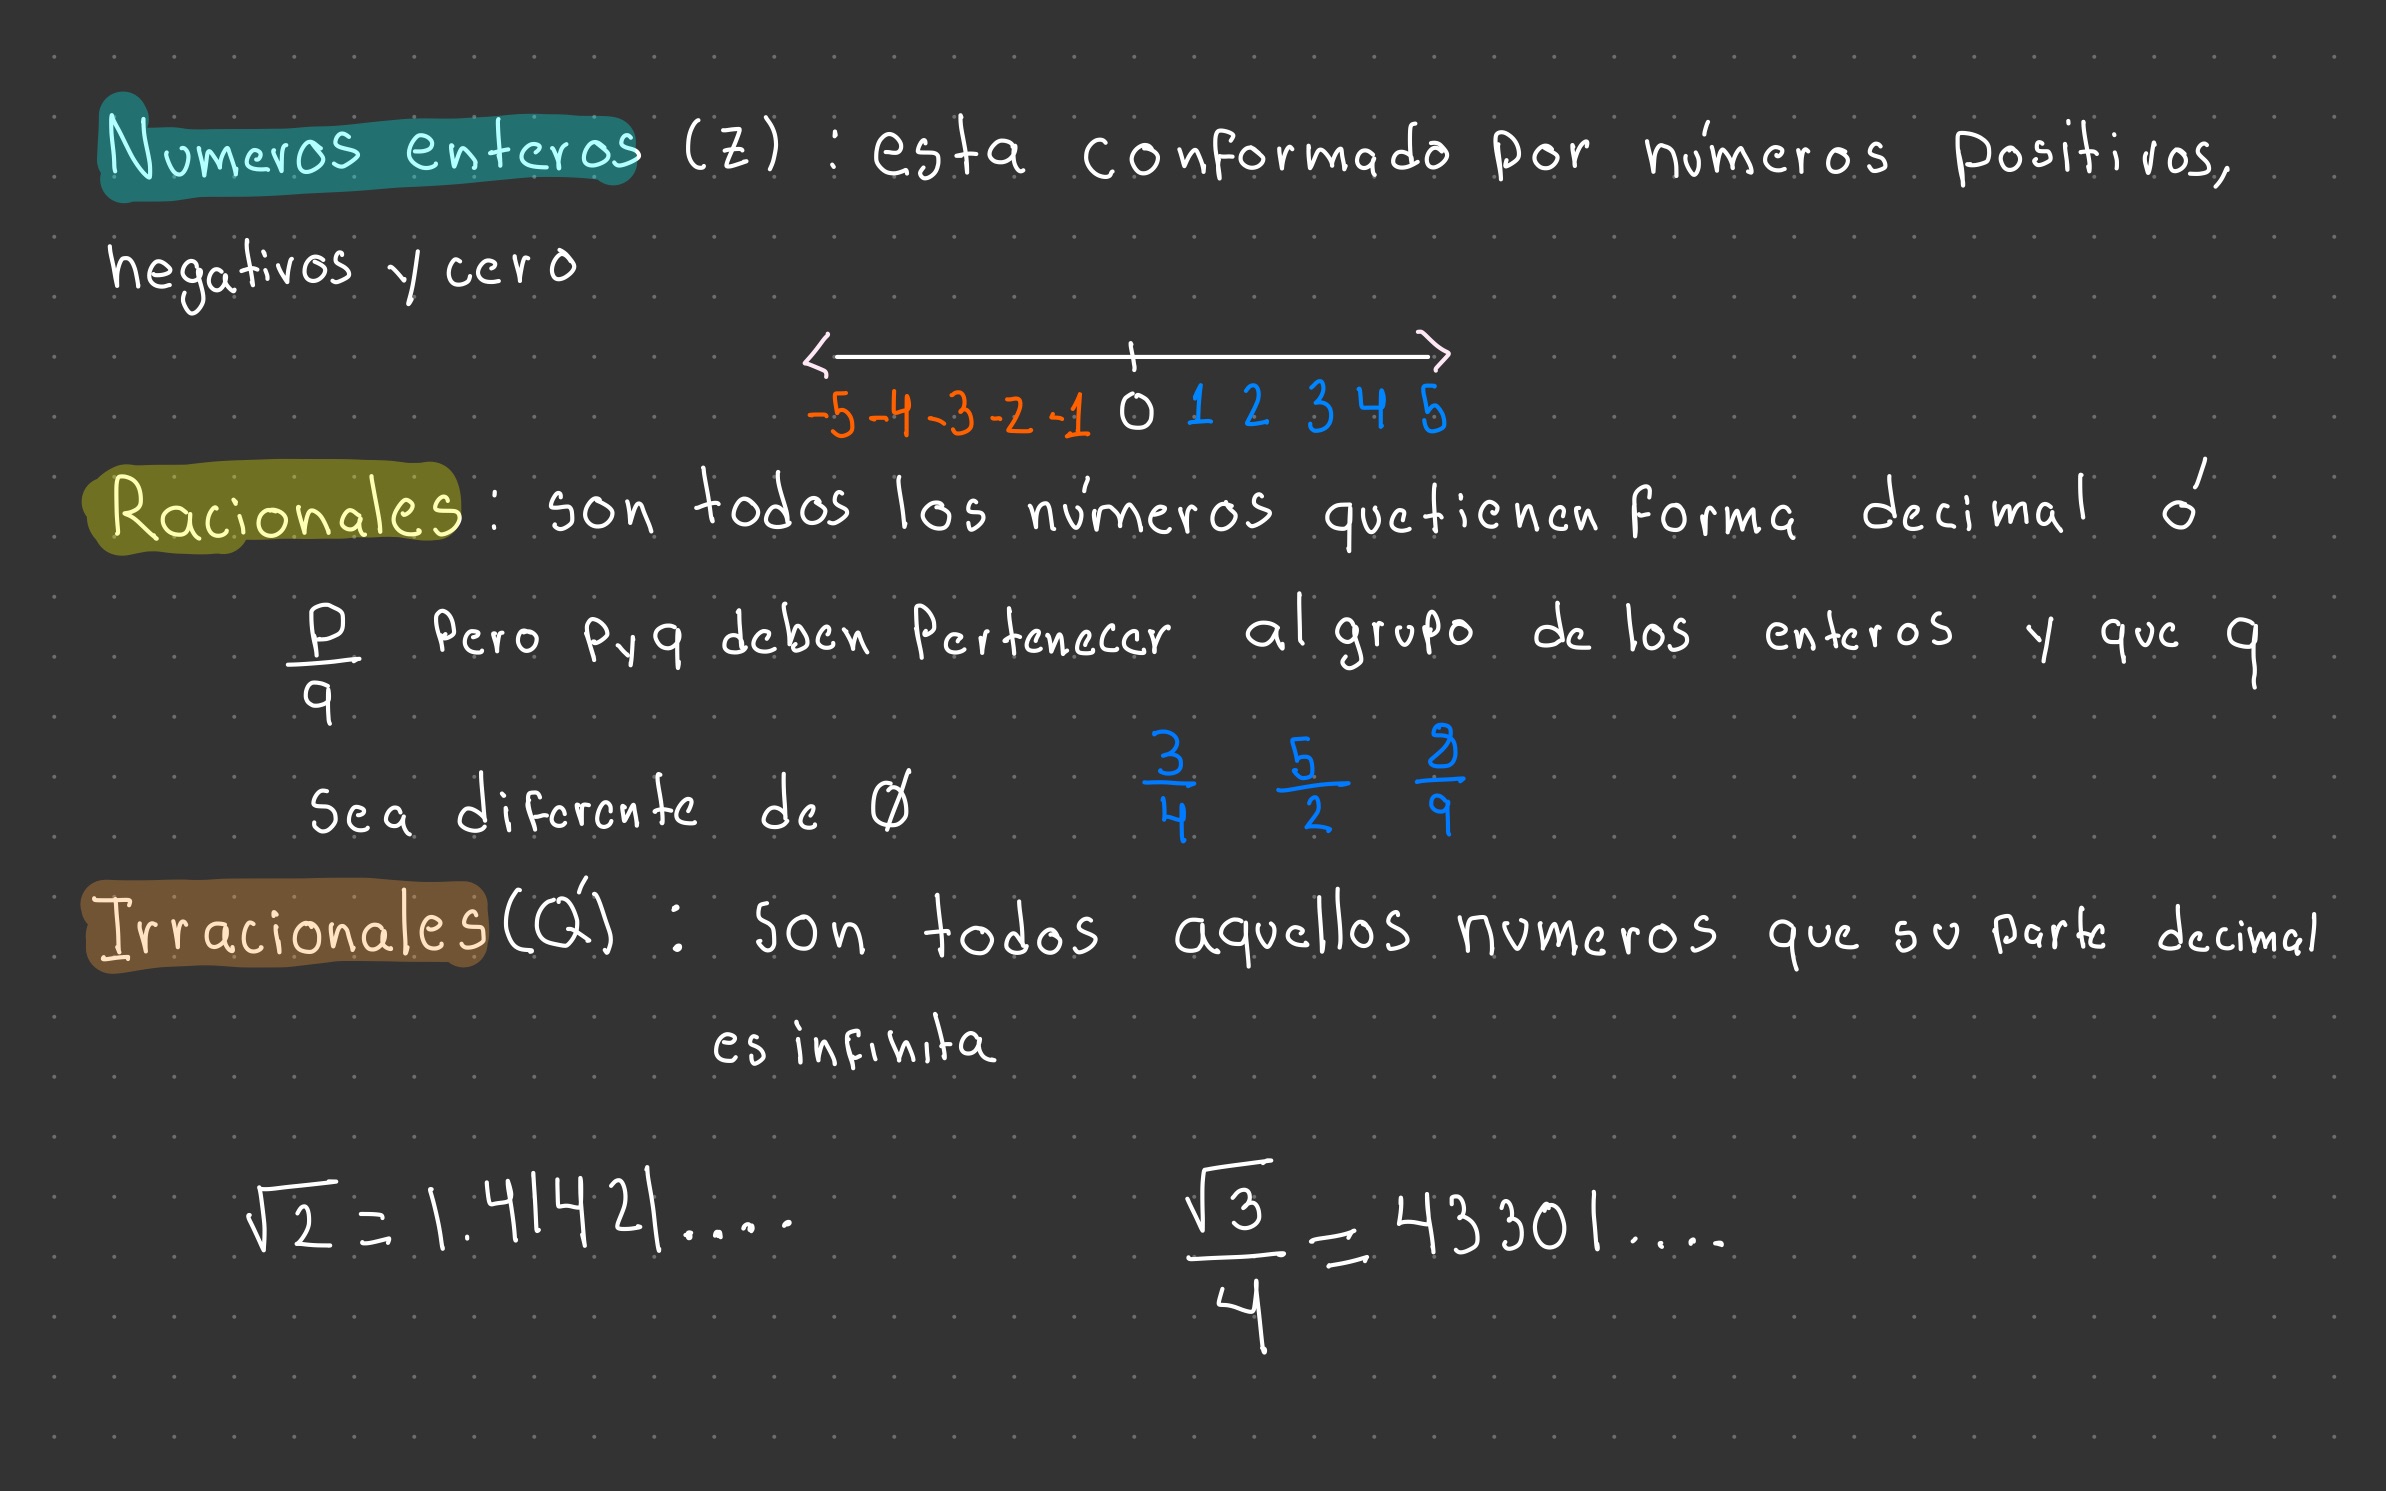 Numeros enteros (Z) : esta conformado por números positivos,
negativos y cero
-5 -4 -3 -2 -1 0 1 2 3 4 5
Racionales : son todos los números que tienen forma decimal ó
p/q pero p y q deben pertenecer al grupo de los enteros y que q
sea diferente de 0
3/4 5/2 8/9
Irracionales (Q') : son todos aquellos numeros que su parte decimal
es infinita
√2 = 1.41421.....
√3/4 = 43301....